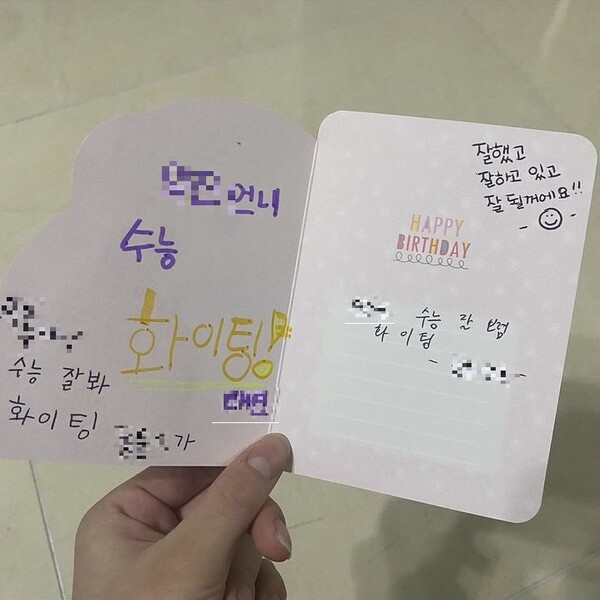 언니
수능
화이팅!
수능 잘봐
화이팅
가
잘했고
잘하고 있고
잘 될꺼에요!!
HAPPY
BIRTHDAY
수능 잘 봐
화이팅